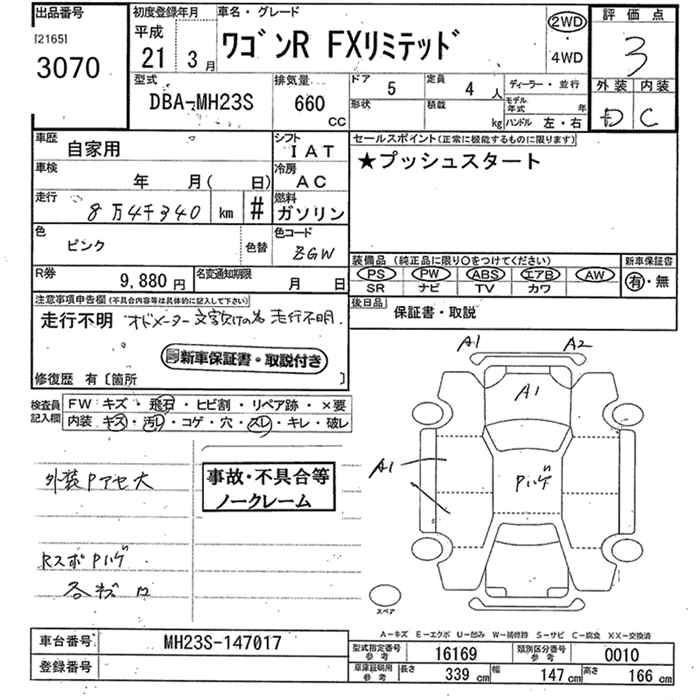 出品番号
[2165]
3070
初度登録年月
平成
21 3月
車名・グレード
ワゴンR FXリミテッド
2WD
・
4WD
評価点
3
外装 内装
D C
型式
DBA-MH23S
排気量
660
cc
ドア
5
定員
4 人
ディーラー・並行
形状
積載
kg
モデル年式 年
ハンドル 左・右
車歴
自家用
シフト
IAT
車検
年 月( 日)
冷房
AC
走行
8万4千340 km #
燃料
ガソリン
色
ピンク
色替
色コード
ZGW
R券
9,880 円
名変通知期限
月 日
セールスポイント(正常に機能するものに限ります)
★プッシュスタート
装備品 (純正品に限り○をつけてください)
新車保証書
PS PW ABS エアB AW
SR ナビ TV カワ
有・無
後日品
保証書・取説
注意事項申告欄(不具合内容等は具体的に記入して下さい)
走行不明 オドメーター文字欠けの為 走行不明.
新車保証書・取説付き
修復歴 有〔箇所 〕
検査員記入欄
FW キズ・飛石・ヒビ割・リペア跡・×要
内装 キズ・汚レ・コゲ・穴・スレ・キレ・破レ
外装Pアセ大
事故・不具合等
ノークレーム
RスポPハゲ
A1 A2
A1
A1
Pハゲ
スペア
A-キズ E-エクボ U-凹み W-補修跡 S-サビ C-腐食 XX-交換済
車台番号
MH23S-147017
登録番号
型式指定番号
参考
16169
類別区分番号
参考
0010
車庫証明用
参考
長さ
339 cm
幅
147 cm
高さ
166 cm